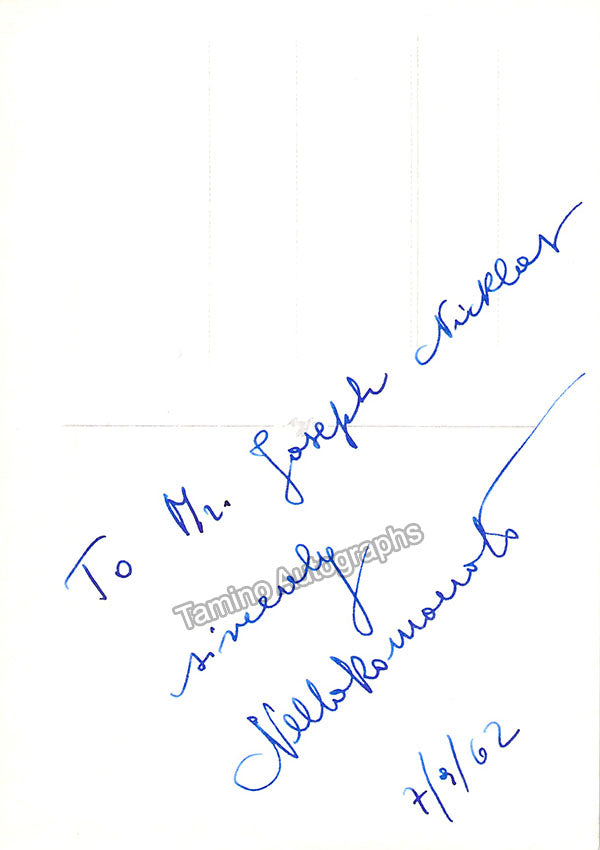 To Mr. Joseph Nicklas
sincerely
Nello Romanato
7/9/62
Tamino Autographs